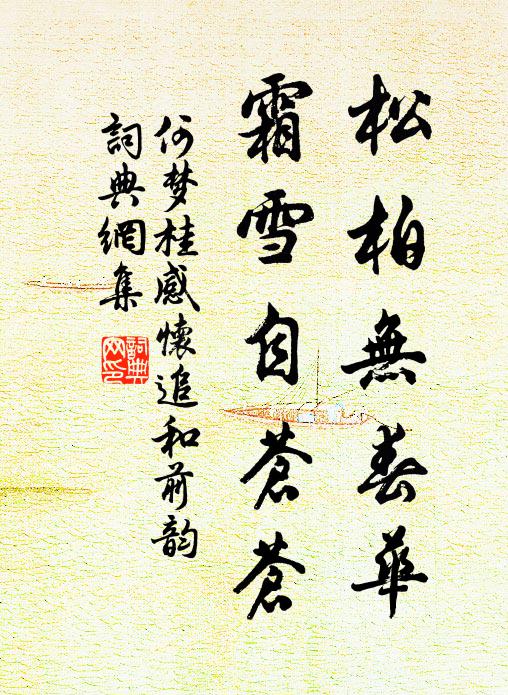 松柏無春華
霜雪自蒼蒼
何梦桂感懷追和前韵
詞典網集
詞典网印